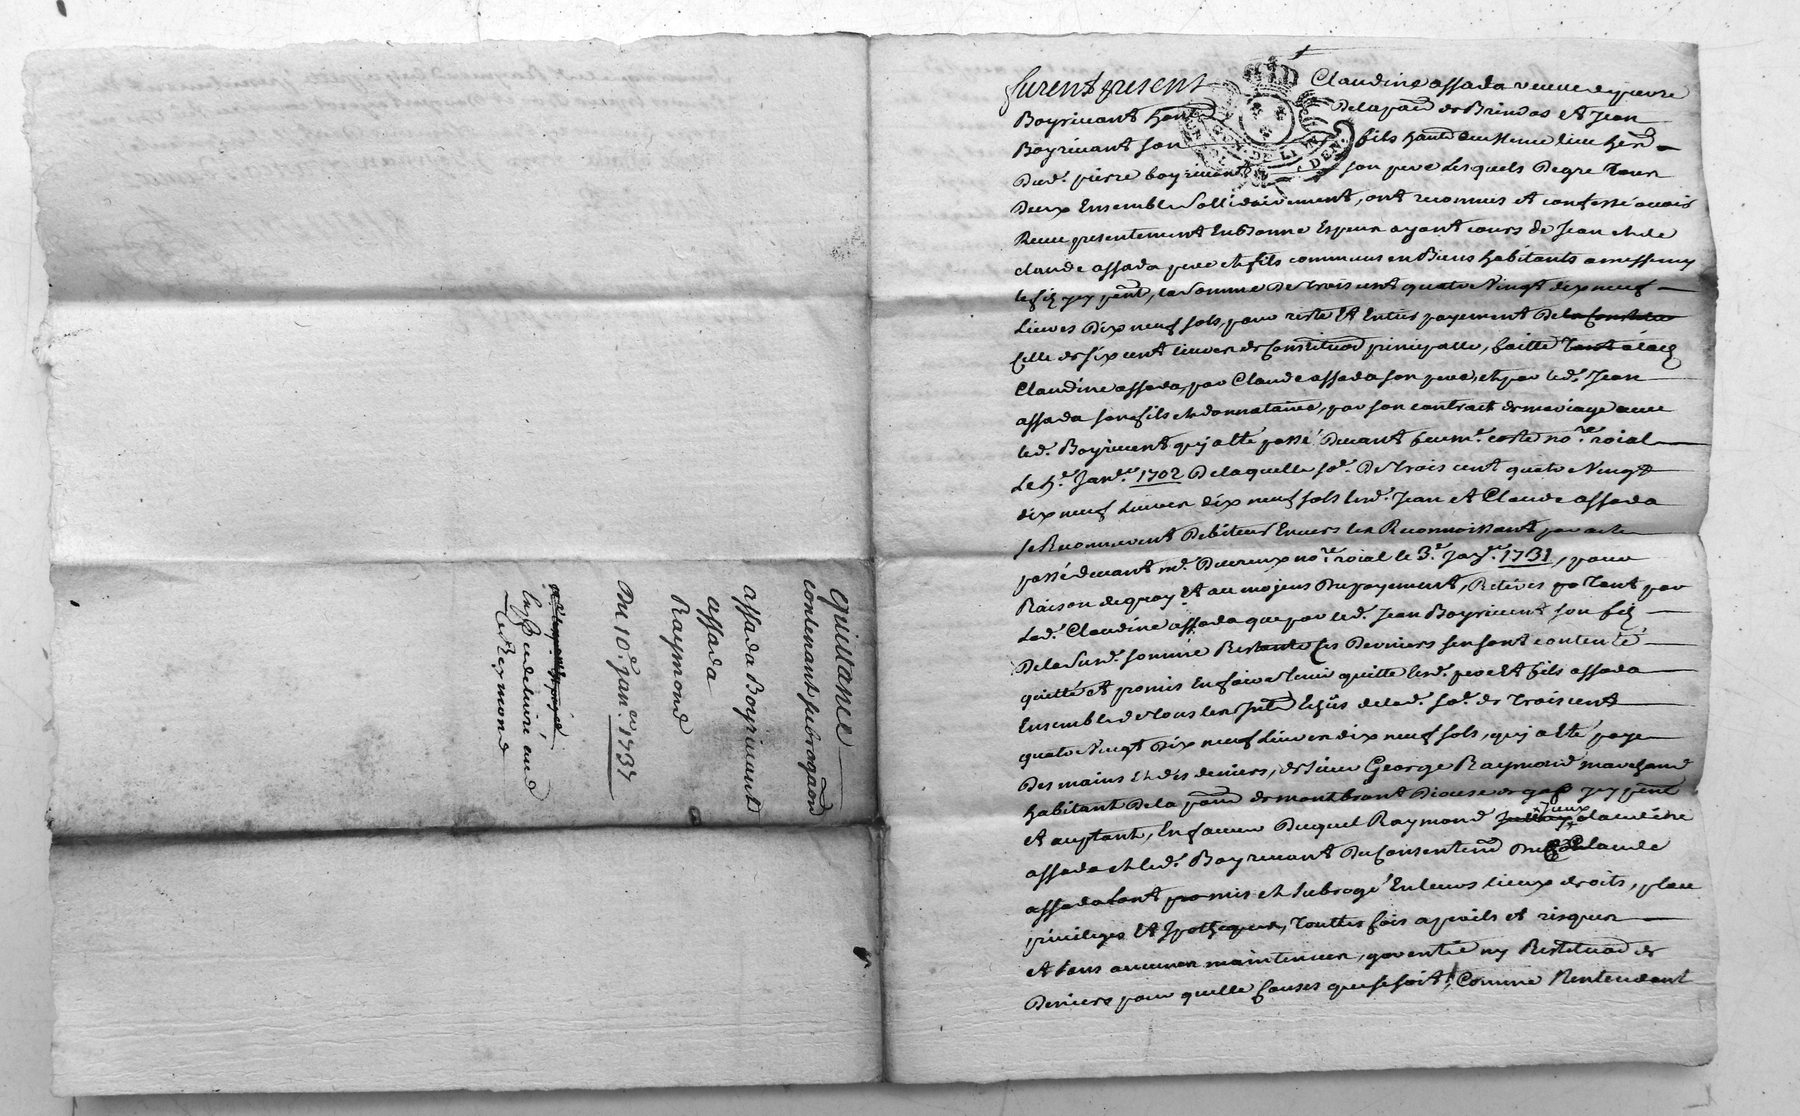 quittance
contenant subrogaōn
assada Boyrivant
assada
Raymond
Du 10e. janer. 1737
expédié et delivré aud
Sr Reymond
furent present Claudine assada veuve de pierre
Boyrivant hant de la pañe de Brindas et Jean
Boyrivant son fils hant dud meme lieu her
Dud. pierre boyrivant son pere Lesquels De gre Tous
Deux Ensemble Sollidairement, ont reconnus et confessé avoir
Receu presentement En Bonne Espece ayant cours de Jean et de
claude assada pere et fils communs en Biens habitants a messimy
le fil icy pent, la Somme De trois cent quatre Vingt dix neuf
Livres Dix neuf sols, pour reste Et Entier payement De la Constitu
Celle de six cent livres de Constituaõn principalle, faitte Tant a lad
Claudine assada, par Claude assada son pere, et par led. Jean
assada son fils et donnataire, par son contract de mariage avec
led. Boyrivent qui a êté passé Devant feu me. coste nore. roial
Le 5e. Janer. 1702 De laquelle se. De trois cent quatre Vingt
dix neuf Livres dix neuf sols lesd. Jean et Claude assada
se Reconnurent Debiteur Envers les Reconnoissant par acte
passé devant me. Ducreux nore. roial le 3e. Janer. 1731, pour
Raison de quoy et au moyens Du payement, Retirés pr Tant par
Lad. Claudine assada que par led. Jean Boyrivent son fil
De la Susd. somme Restante Ces Derniers sen sont contenté
quitté et promis En faire Tenir quitte lesd. pere Et fils assada
Ensemble de tous les Jnts Legûs de lad. se. de Trois cent
quatre Vingt Dix neuf Livres dix neuf sols, qui a êté payé
Des mains Et des deniers, de sieur George Raymond marchand
habitant De la pañe de montbrant Diocese de gap icy pent
et aceptant, En faveur Duquel Raymond Jceux claudine
assada et led. Boyrivant Du Consentent Dud Claude
assada sont promis et Subrogé En leurs lieux droits, place
privileges Et Ypotheques, Touttes fois a perils et risques
et sans aucunes maintenues, garentie ny Restituaõn de
Deniers pour quelle Causes que se soit, Comme Nentendant